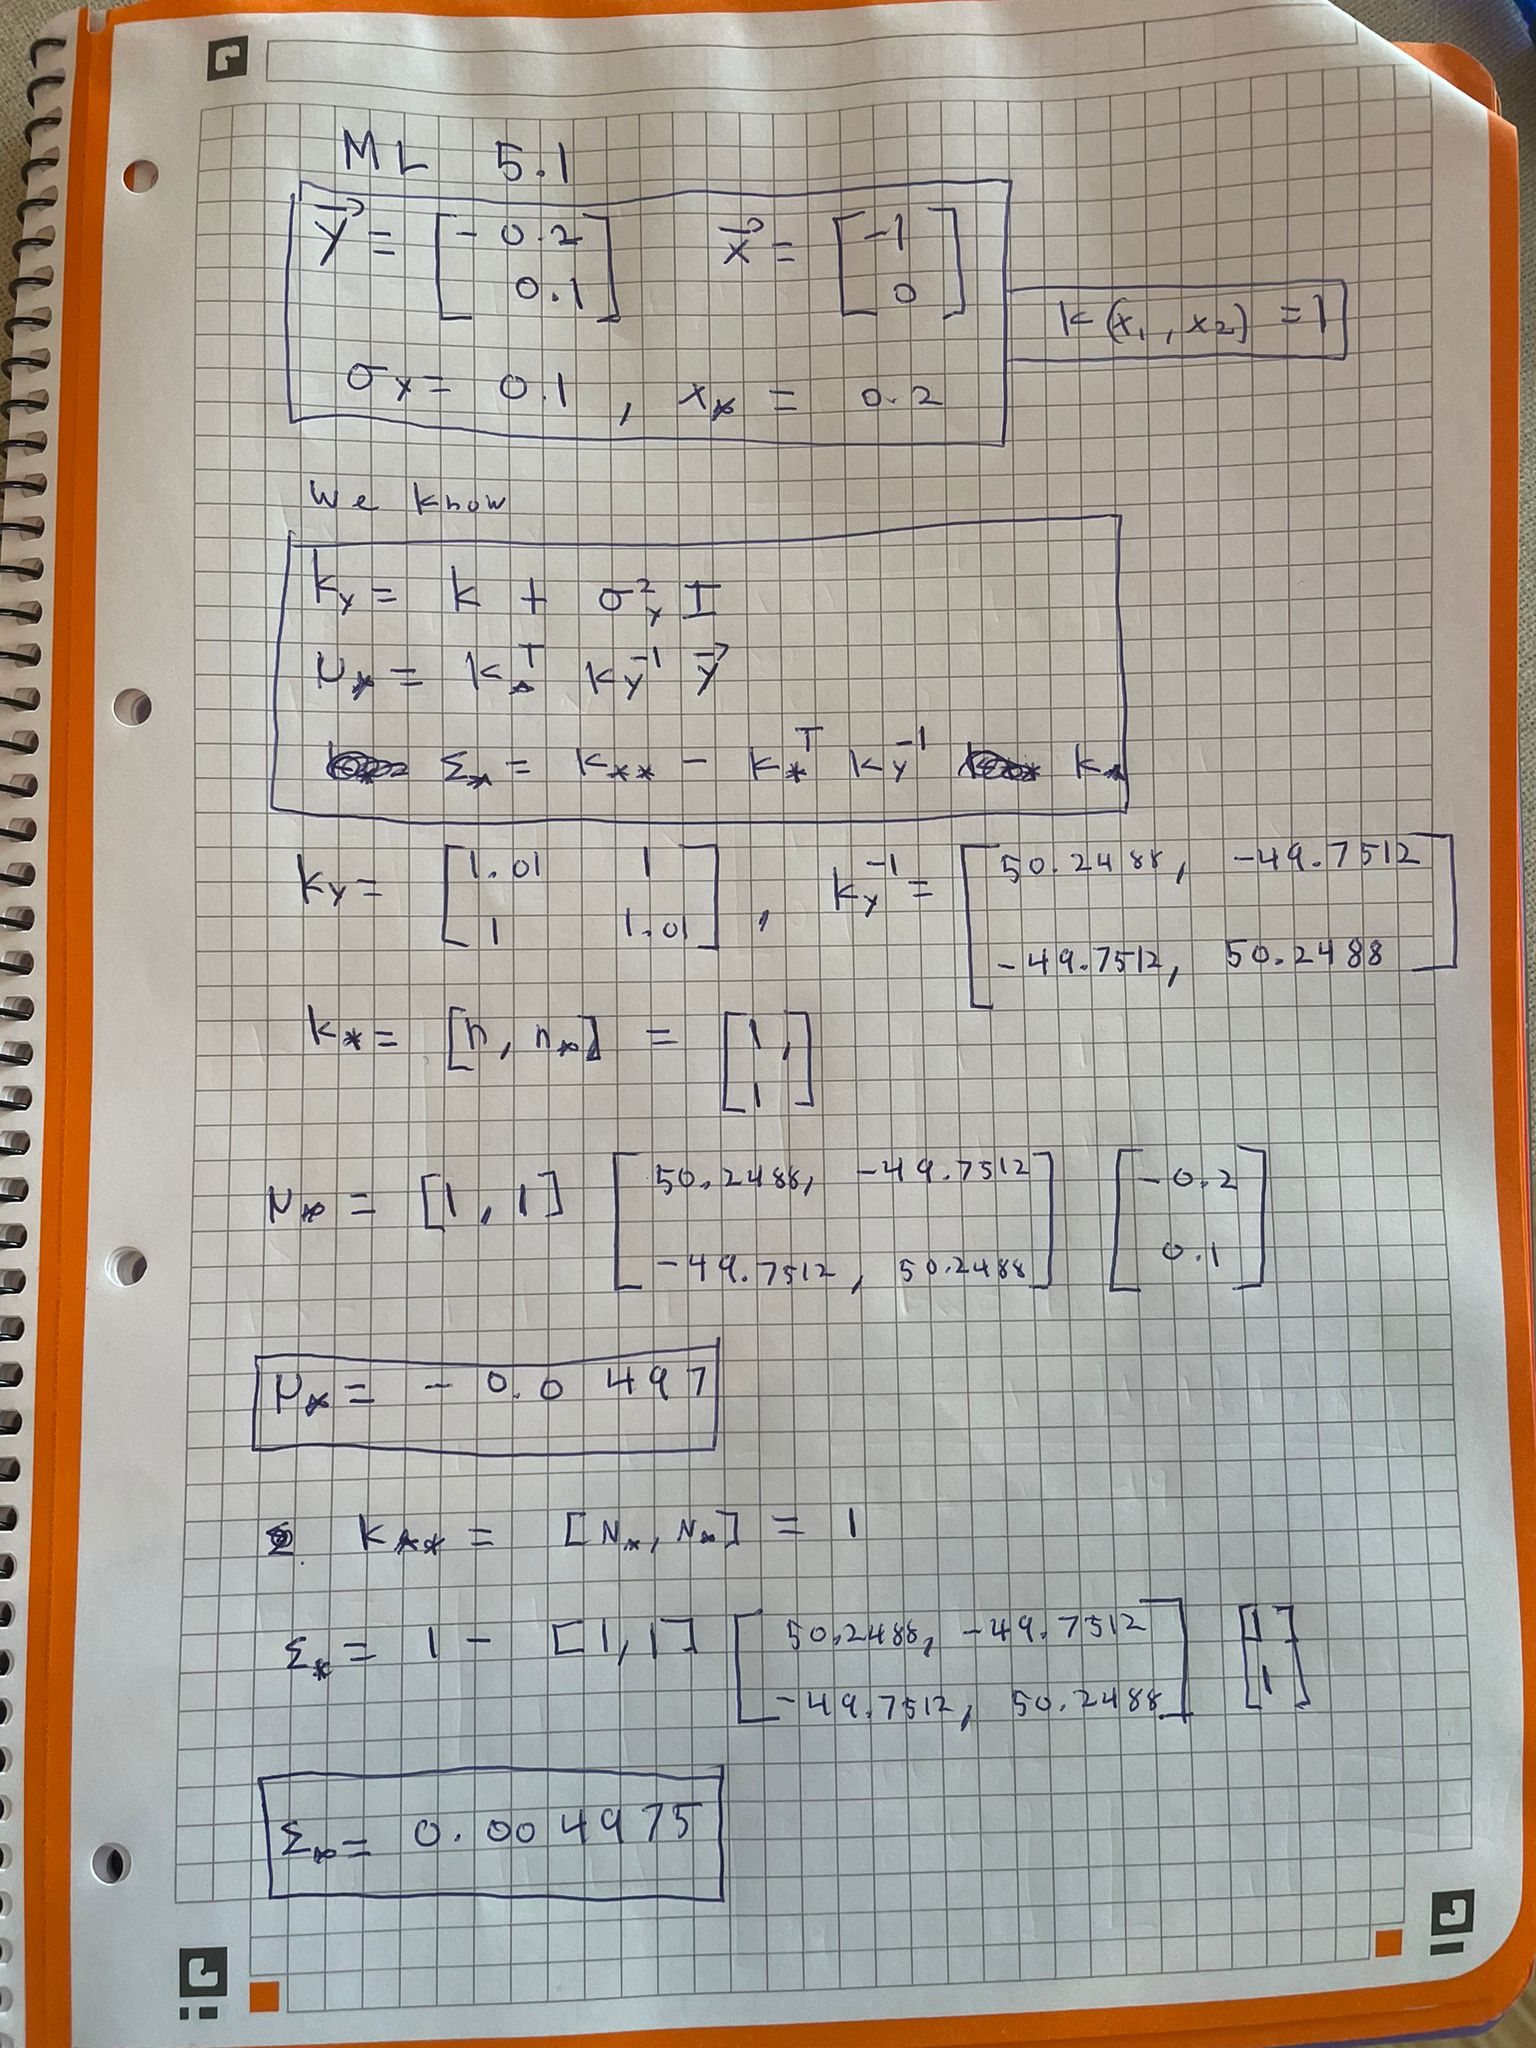 ML 5.1
y⃗ = [-0.2 0.1] x⃗ = [-1 0]
k(x₁, x₂) = 1
σy = 0.1, x* = 0.2
We know
ky = k + σ²y I
μ* = k*ᵀ ky⁻¹ y⃗
Σ* = k** - k*ᵀ ky⁻¹ k*
ky = [1.01 1
1 1.01], ky⁻¹ = [50.2488, -49.7512
-49.7512, 50.2488]
k* = [n, n*] = [1, 1]
μ* = [1, 1] [50.2488, -49.7512
-49.7512, 50.2488] [-0.2 0.1]
μ* = -0.0497
k** = [N*, N*] = 1
Σ* = 1 - [1, 1] [50.2488, -49.7512
-49.7512, 50.2488] [1 1]
Σ* = 0.004975